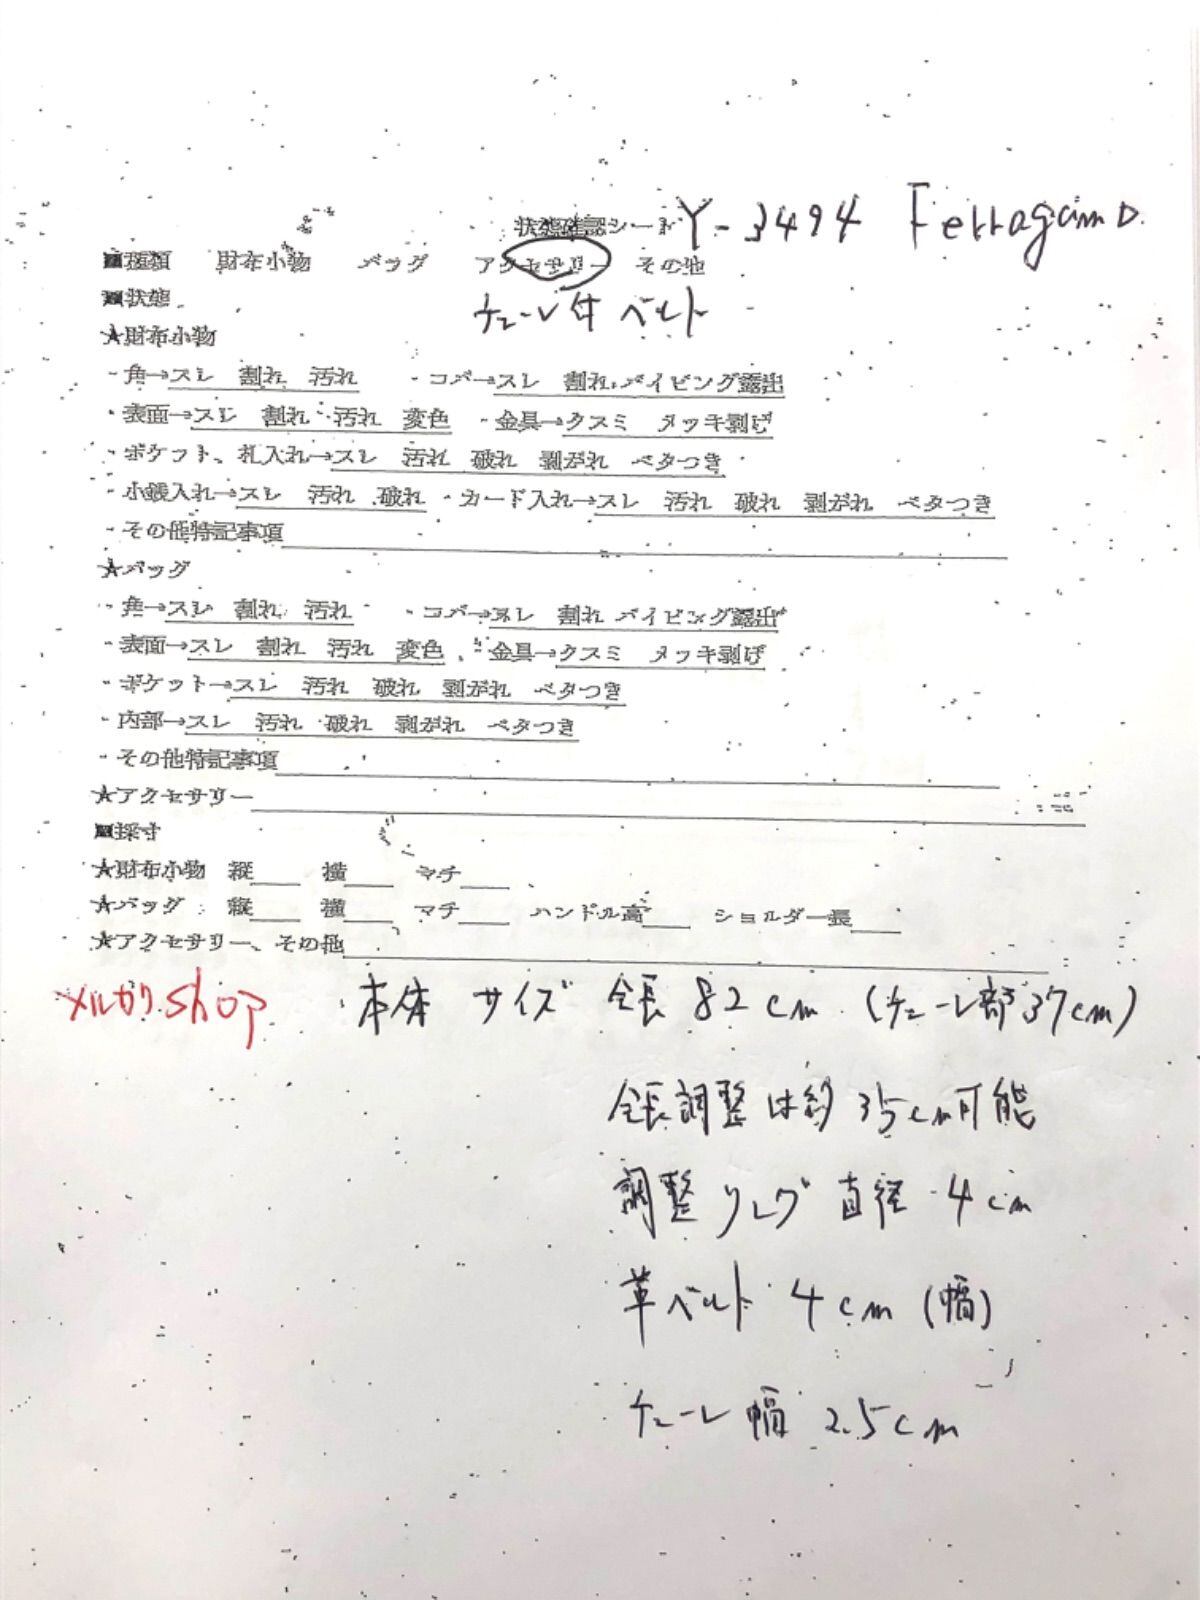 状態確認シート Y-3494 Ferragamo
■種類 財布小物 バッグ アクセサリー その他
■状態 チェーン付 ベルト
★財布小物
・角→スレ 割れ 汚れ ・コバ→スレ 割れ パイピング露出
・表面→スレ 割れ 汚れ 変色 ・金具→クスミ メッキ剥げ
・ポケット、札入れ→スレ 汚れ 破れ 剥がれ ベタつき
・小銭入れ→スレ 汚れ 破れ ・カード入れ→スレ 汚れ 破れ 剥がれ ベタつき
・その他特記事項
★バッグ
・角→スレ 割れ 汚れ ・コバ→スレ 割れ パイピング露出
・表面→スレ 割れ 汚れ 変色 ・金具→クスミ メッキ剥げ
・ポケット→スレ 汚れ 破れ 剥がれ ベタつき
・内部→スレ 汚れ 破れ 剥がれ ベタつき
・その他特記事項
★アクセサリー
■採寸
★財布小物 縦 横 マチ
★バッグ 縦 横 マチ ハンドル高 ショルダー長
★アクセサリー、その他
メルカリshop ・本体 サイズ 全長 82cm (チェーン部37cm)
全長調整は約35cm可能
調整リング 直径 4cm
革ベルト 4cm (幅)
チェーン幅 2.5cm